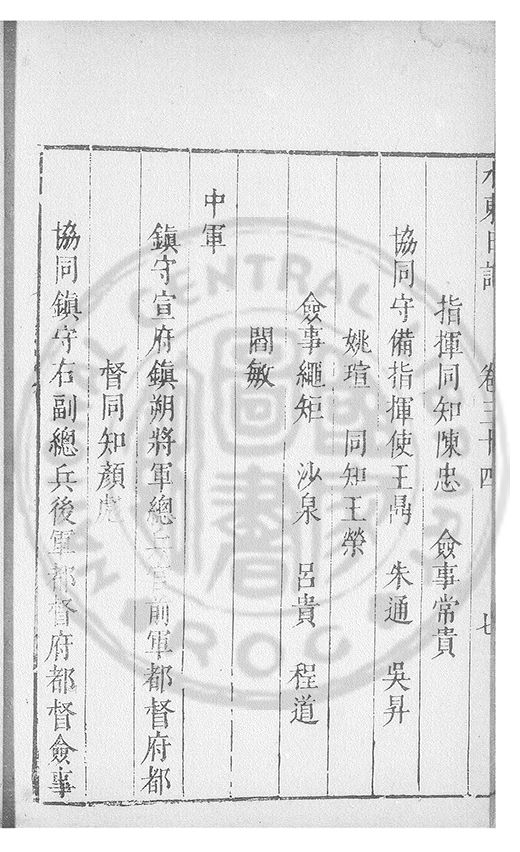 水東日記 卷三十四 七
指揮同知陳忠 僉事常貴
協同守備指揮使王瑀 朱通 吳昇
姚瑄 同知王榮
僉事繩矩 沙泉 呂貴 程道
閻敏
中軍
鎮守宣府鎮朔將軍總兵官前軍都督府都
督同知顏彪
協同鎮守右副總兵後軍都督府都督僉事
CENTRAL